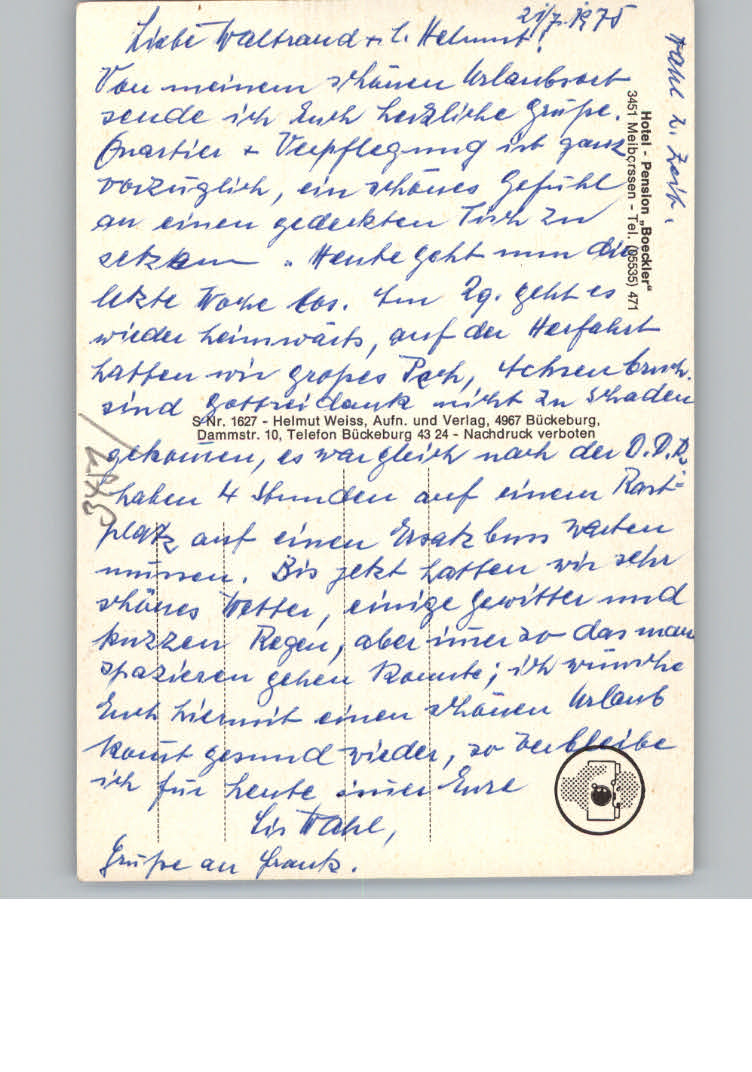 21/7. 1975
Liebe Waltraud + l. Helmut!
Von meinem schönen Urlaubsort
sende ich Euch herzliche Grüße.
Quartier + Verpflegung ist ganz
vorzüglich, ein schönes Gefühl
an einen gedeckten Tisch zu
setzen. Heute geht nun die
letzte Woche los. Am 29. geht es
wieder heimwärts, auf der Herfahrt
hatten wir großes Pech, Achsenbruch.
sind Gottseidank nicht zu Schaden
gekomen, es war gleich nach der D.D.R.
haben 4 Stunden auf einem Rast-
platz auf einen Ersatzbuss warten
müssen. Bis jetzt hatten wir sehr
schönes Wetter, einige Gewitter und
kurzen Regen, aber imer so das man
spazieren gehen konnte; ich wünsche
Euch hiermit einen schönen Urlaub
komt gesund wieder, so verbleibe
ich für heute imer Eure
Lis Wahl,
Grüße an Frank.
Wahl z. Zeit.
Hotel - Pension „Boeckler“
3451 Meiborssen - Tel. (05535) 471
S Nr. 1627 - Helmut Weiss, Aufn. und Verlag, 4967 Bückeburg,
Dammstr. 10, Telefon Bückeburg 43 24 - Nachdruck verboten